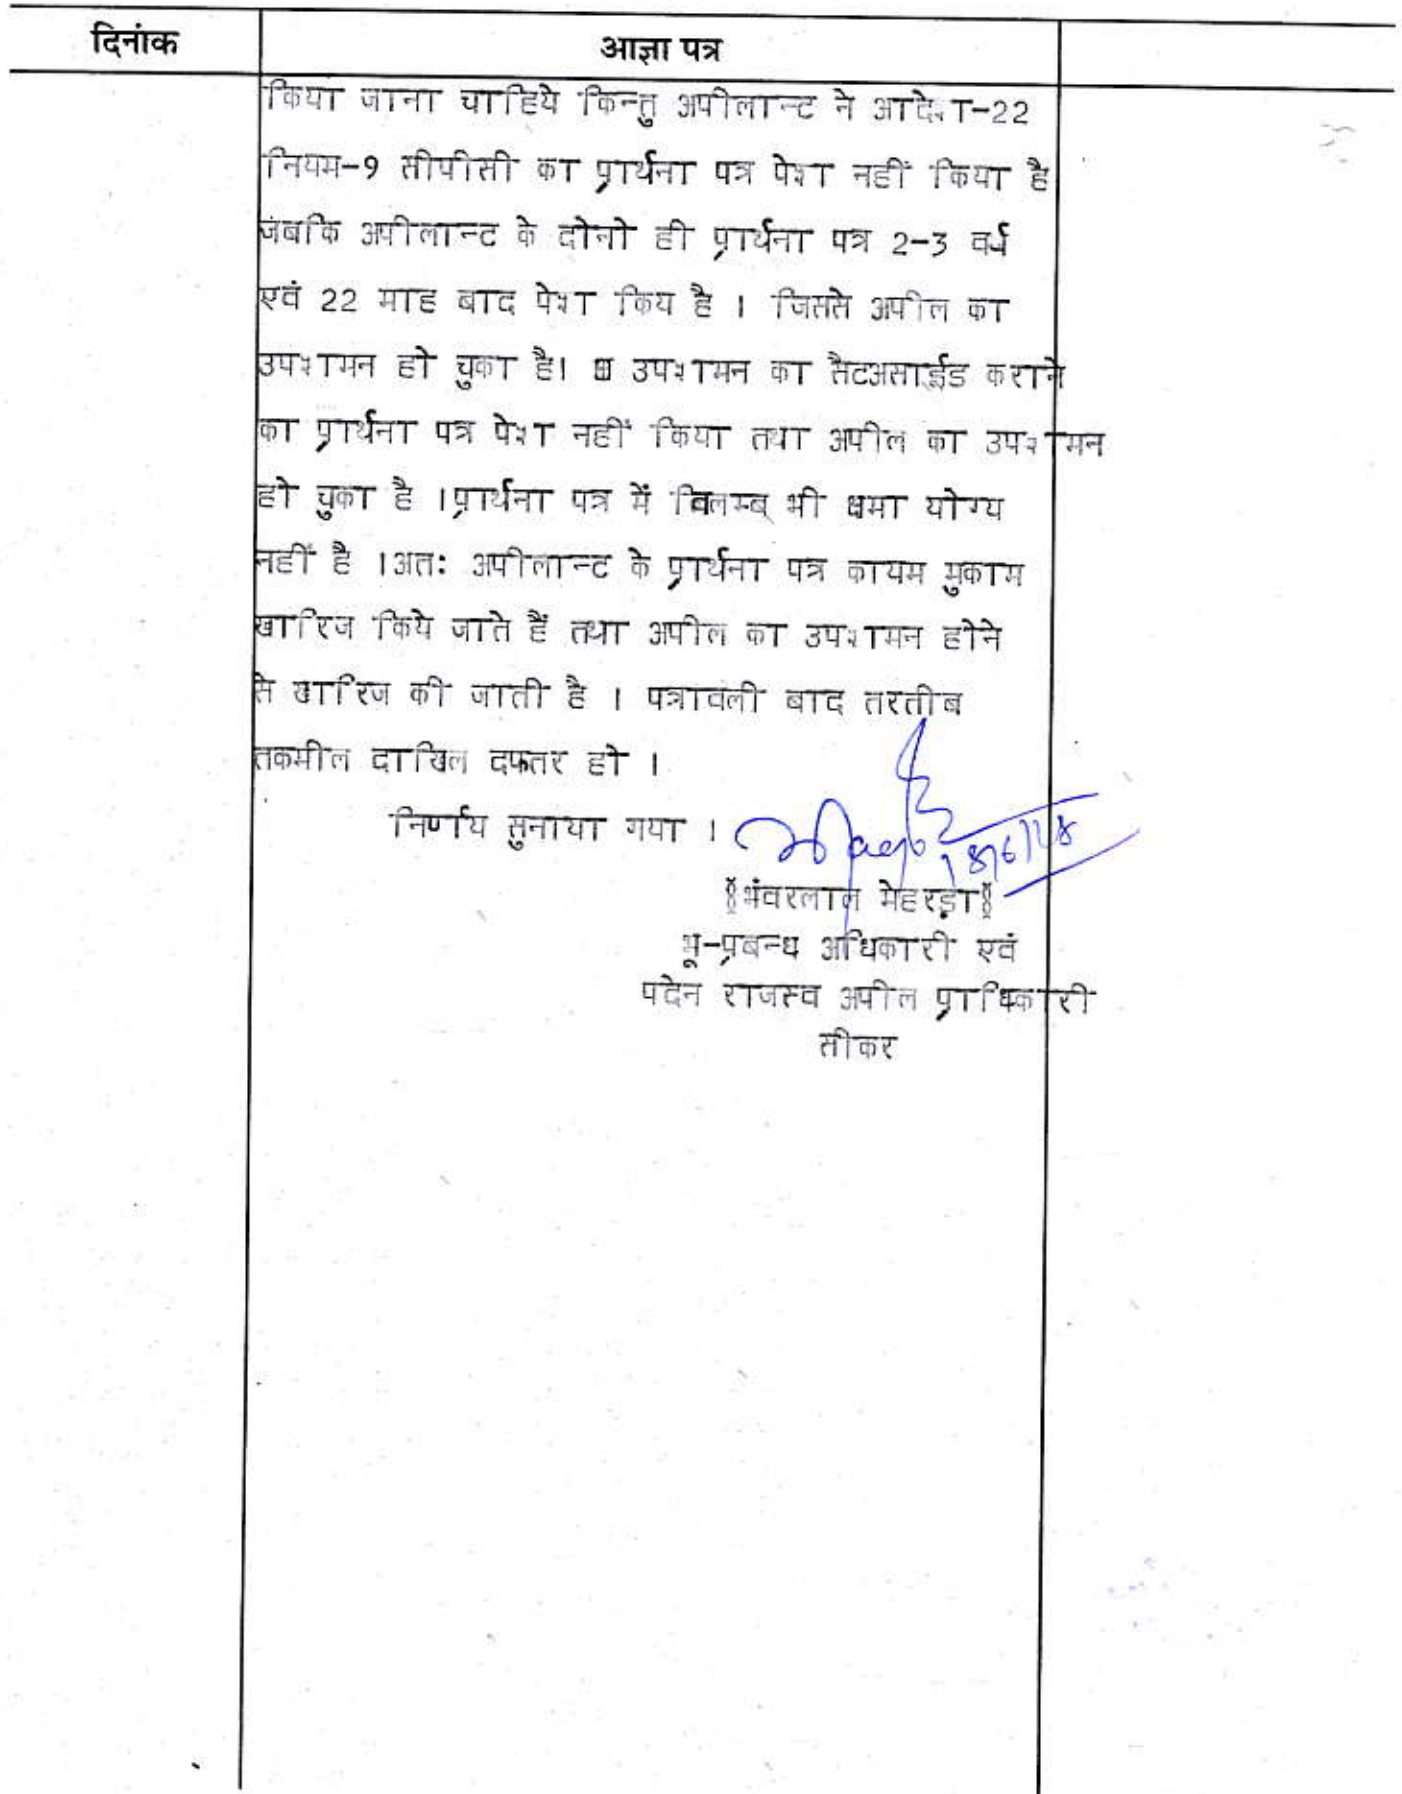 दिनांक आज्ञा पत्र
किया जाना चाहिये किन्तु अपीलान्ट ने आदेश-22
नियम-9 सीपीसी का प्रार्थना पत्र पेश नहीं किया है
जबकि अपीलान्ट के दोनो ही प्रार्थना पत्र 2-3 वर्ष
एवं 22 माह बाद पेश किय है । जिससे अपील का
उपशमन हो चुका है। उपशमन का सैटअसाईड कराने
का प्रार्थना पत्र पेश नहीं किया तथा अपील का उपशमन
हो चुका है ।प्रार्थना पत्र में विलम्ब् भी क्षमा योग्य
नहीं है ।अतः अपीलान्ट के प्रार्थना पत्र कायम मुकाम
खारिज किये जाते हैं तथा अपील का उपशमन होने
से खारिज की जाती है । पत्रावली बाद तरतीब
तकमील दाखिल दफ्तर हो ।
निर्णय सुनाया गया ।
भंवरलाल मेहरड़ा
भू-प्रबन्ध अधिकारी एवं
पदेन राजस्व अपील प्राधिकारी
सीकर